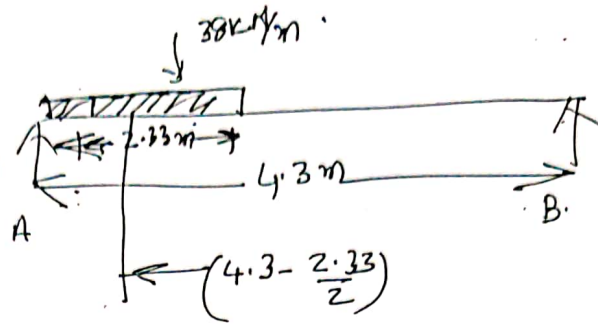 38kN/m
2.33m
4.3m
A
B.
(4.3 - 2.33/2)